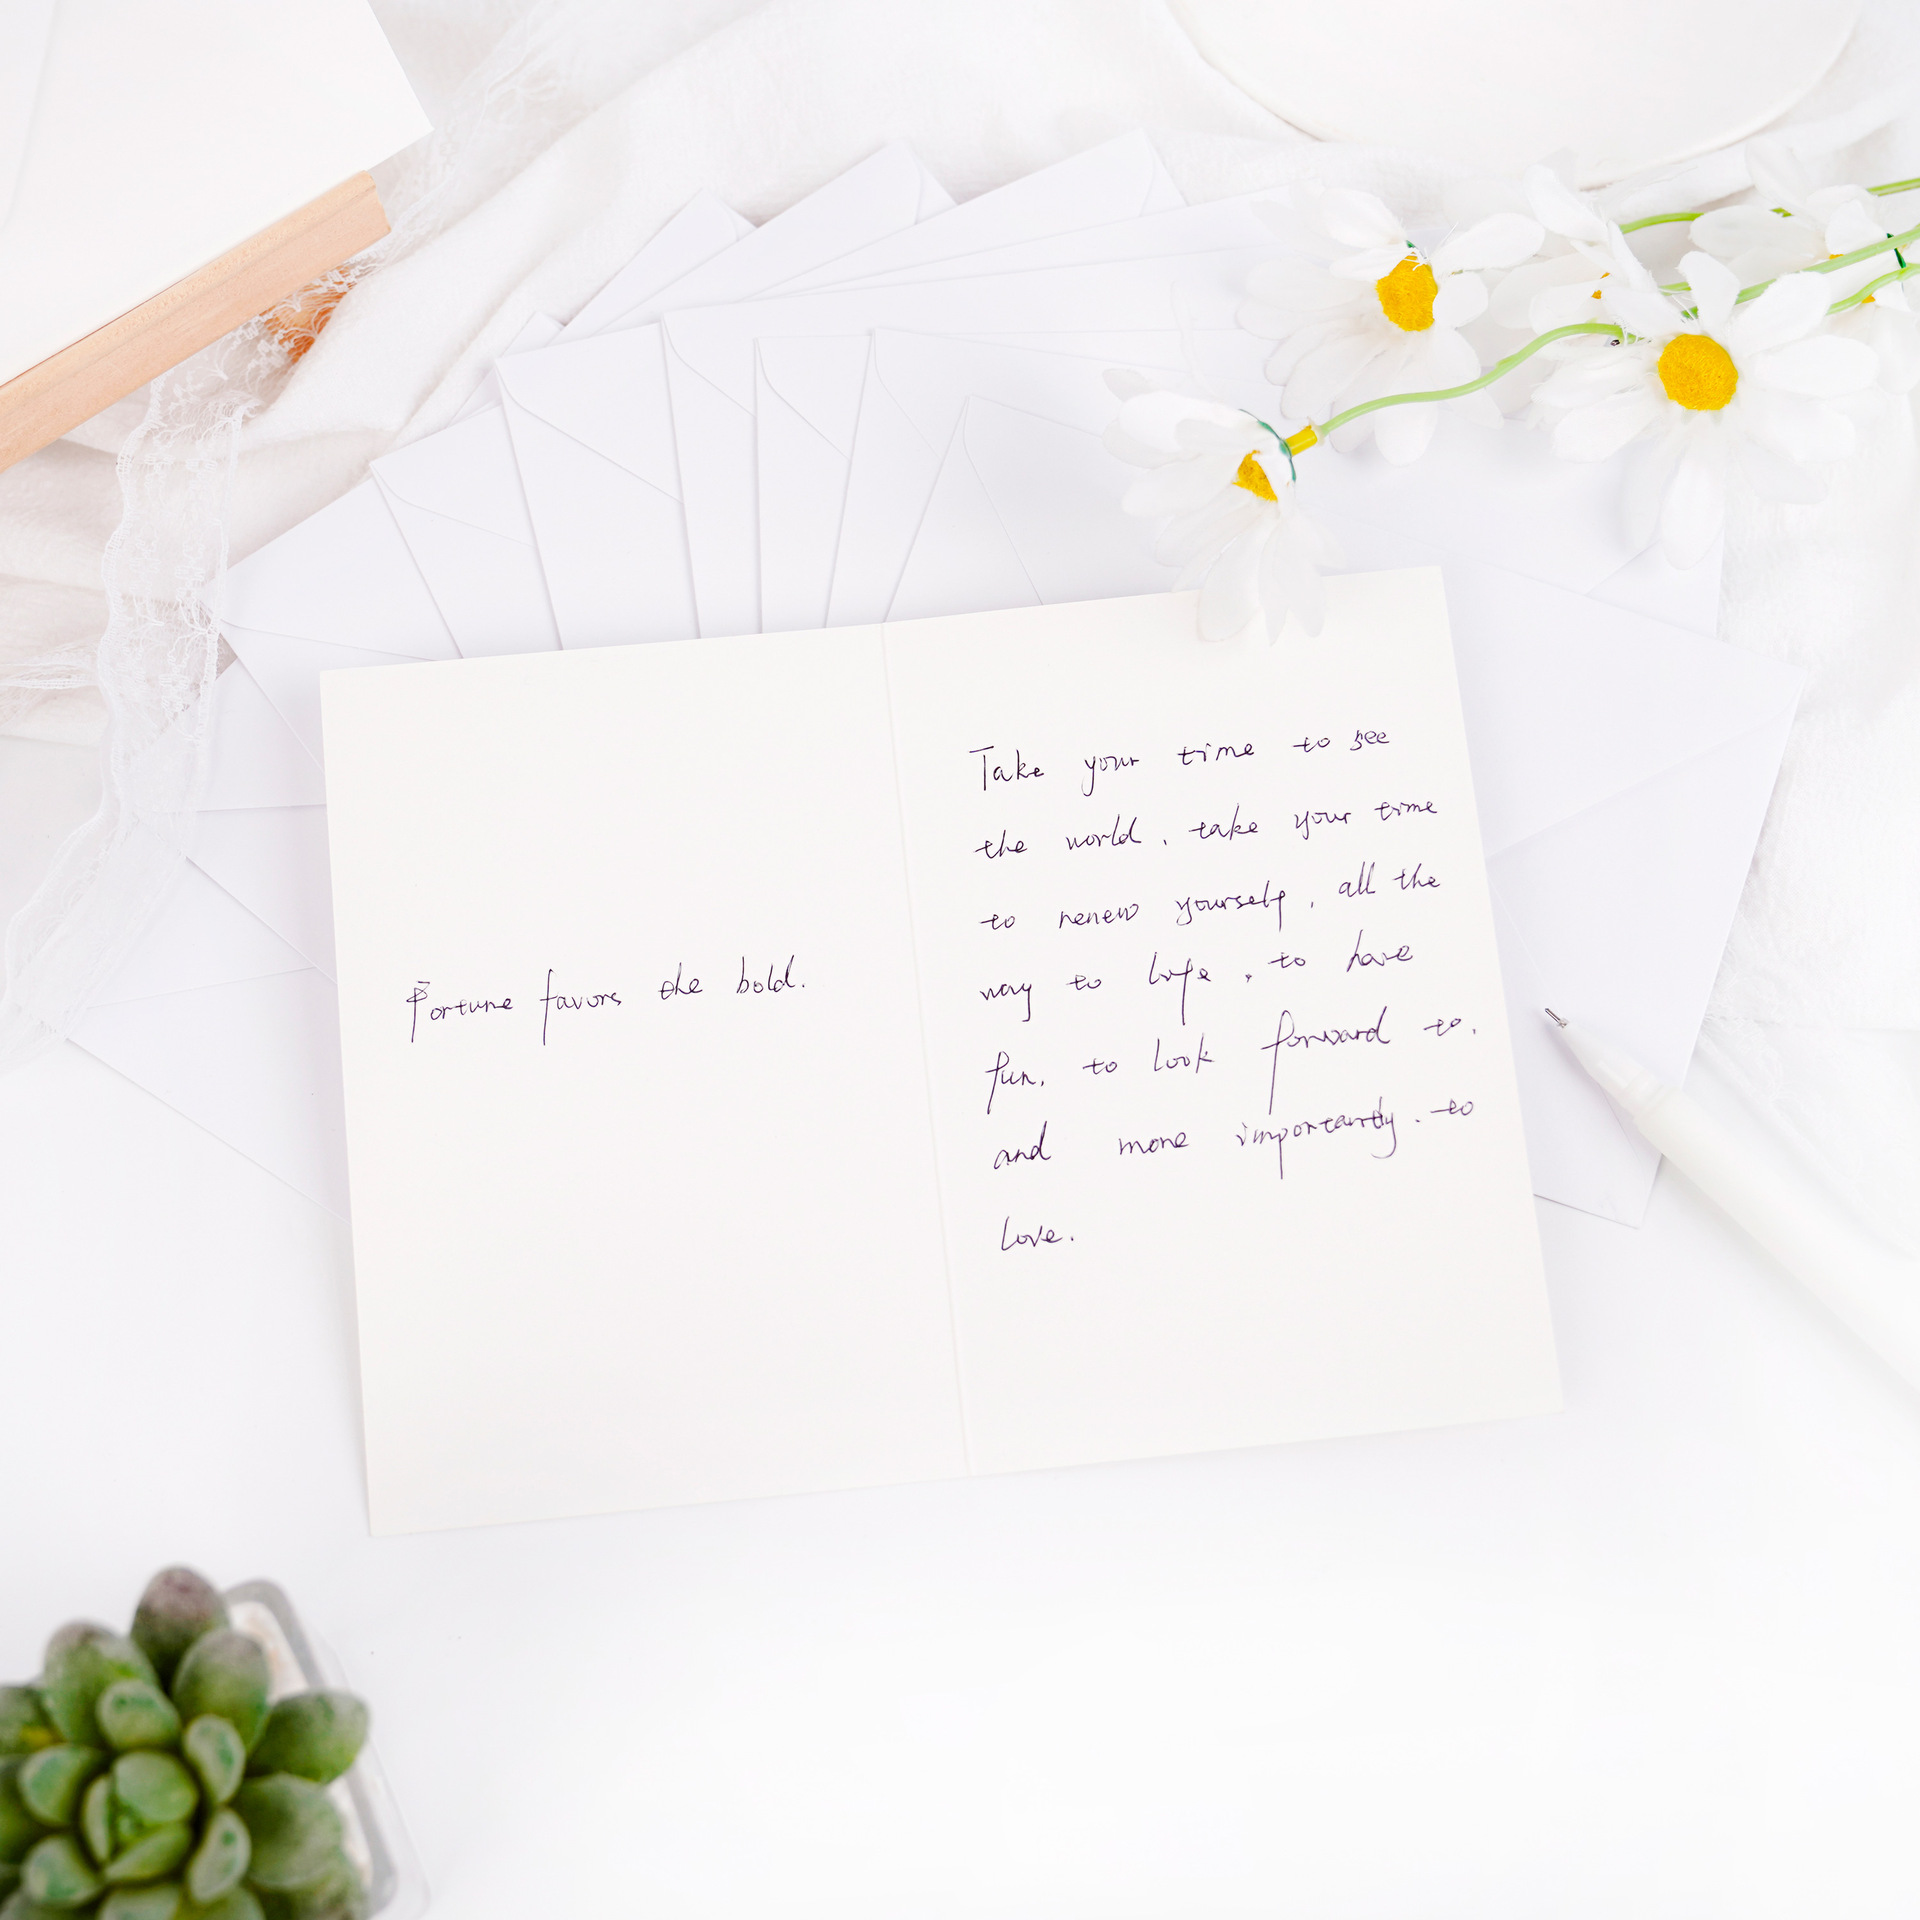 Fortune favors the bold.
Take your time to see
the world, take your time
to renew yourself, all the
way to life, to have
fun, to look forward to,
and more importantly, to
love.